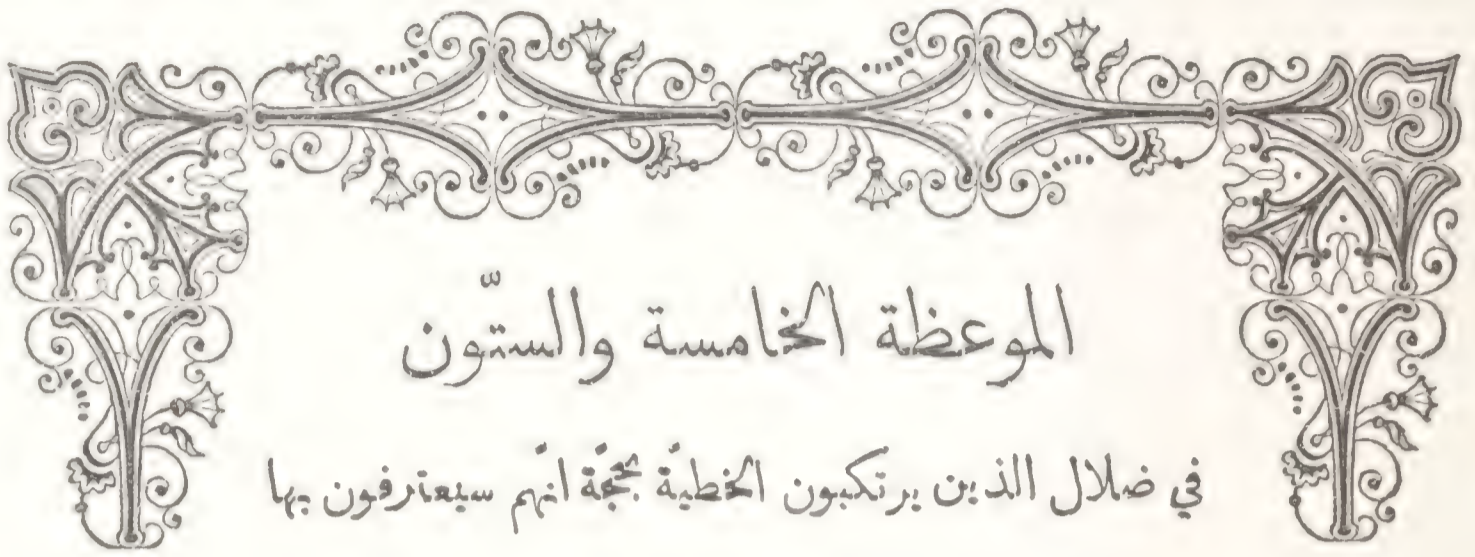 الموعظة الخامسة والستّون
في ضلال الذين يرتكبون الخطيّة بحجّة انّهم سيعترفون بها